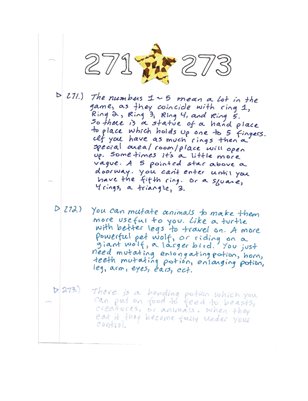 271 273
▷ 271.) The numbers 1~5 mean a lot in the
game, as they coincide with ring 1,
Ring 2, Ring 3, Ring 4, and Ring 5.
So there is a statue of a hand place
to place which holds up one to 5 fingers.
If you have as much rings then a
special area/room/place will open
up. Sometimes it's a little more
vague. A 5 pointed star above a
doorway. you cant enter until you
have the fifth ring. Or a square,
4 rings, a triangle, 3.
▷ 272.) You can mutate animals to make them
more useful to you. Like a turtle
with better legs to travel on. A more
powerful pet wolf, or riding on a
giant wolf, a larger bird. You just
need mutating enlongating potion, horn,
teeth mutating potion, enlarging potion,
leg, arm, eyes, ears, ect.
▷ 273) There is a bonding potion which you
can put on food to feed to beasts,
creatures, or animals. When they
eat it they become fully under your
control.